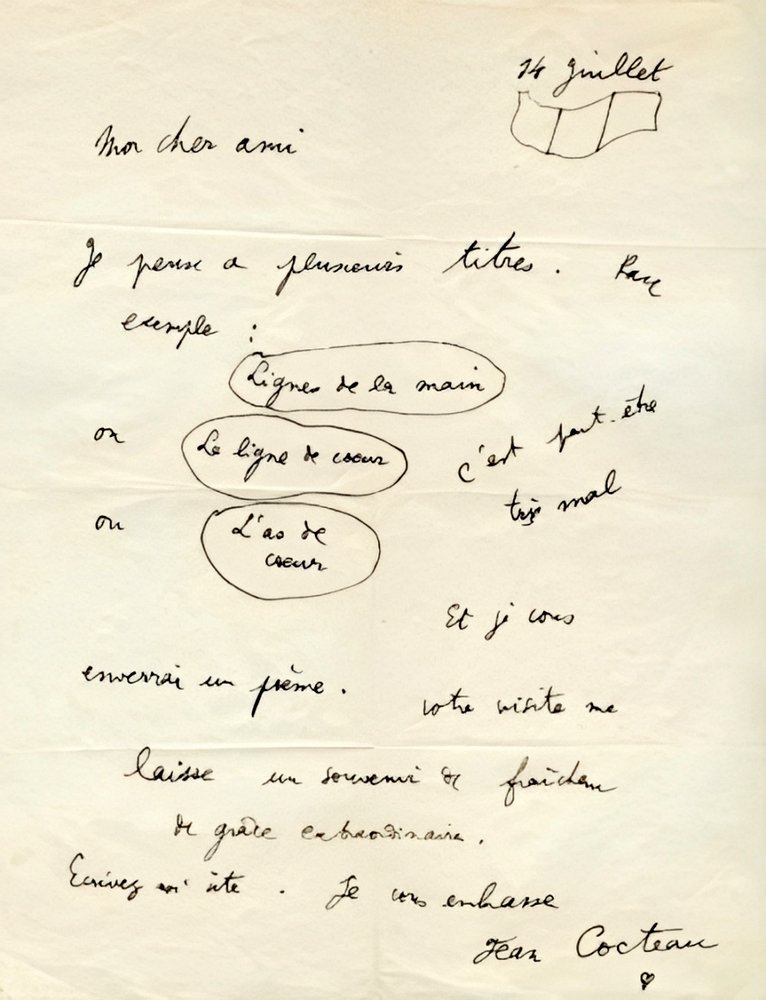 14 Juillet
Mon cher ami
Je pense a plusieurs titres. Par
exemple :
Lignes de la main
ou La ligne de coeur
c'est peut-être
très mal
ou L'as de
coeur
Et je vous
enverrai un poème. votre visite me
laisse un souvenir de fraîcheur
de grâce extraordinaire.
Ecrivez moi vite. Je vous embrasse
Jean Cocteau